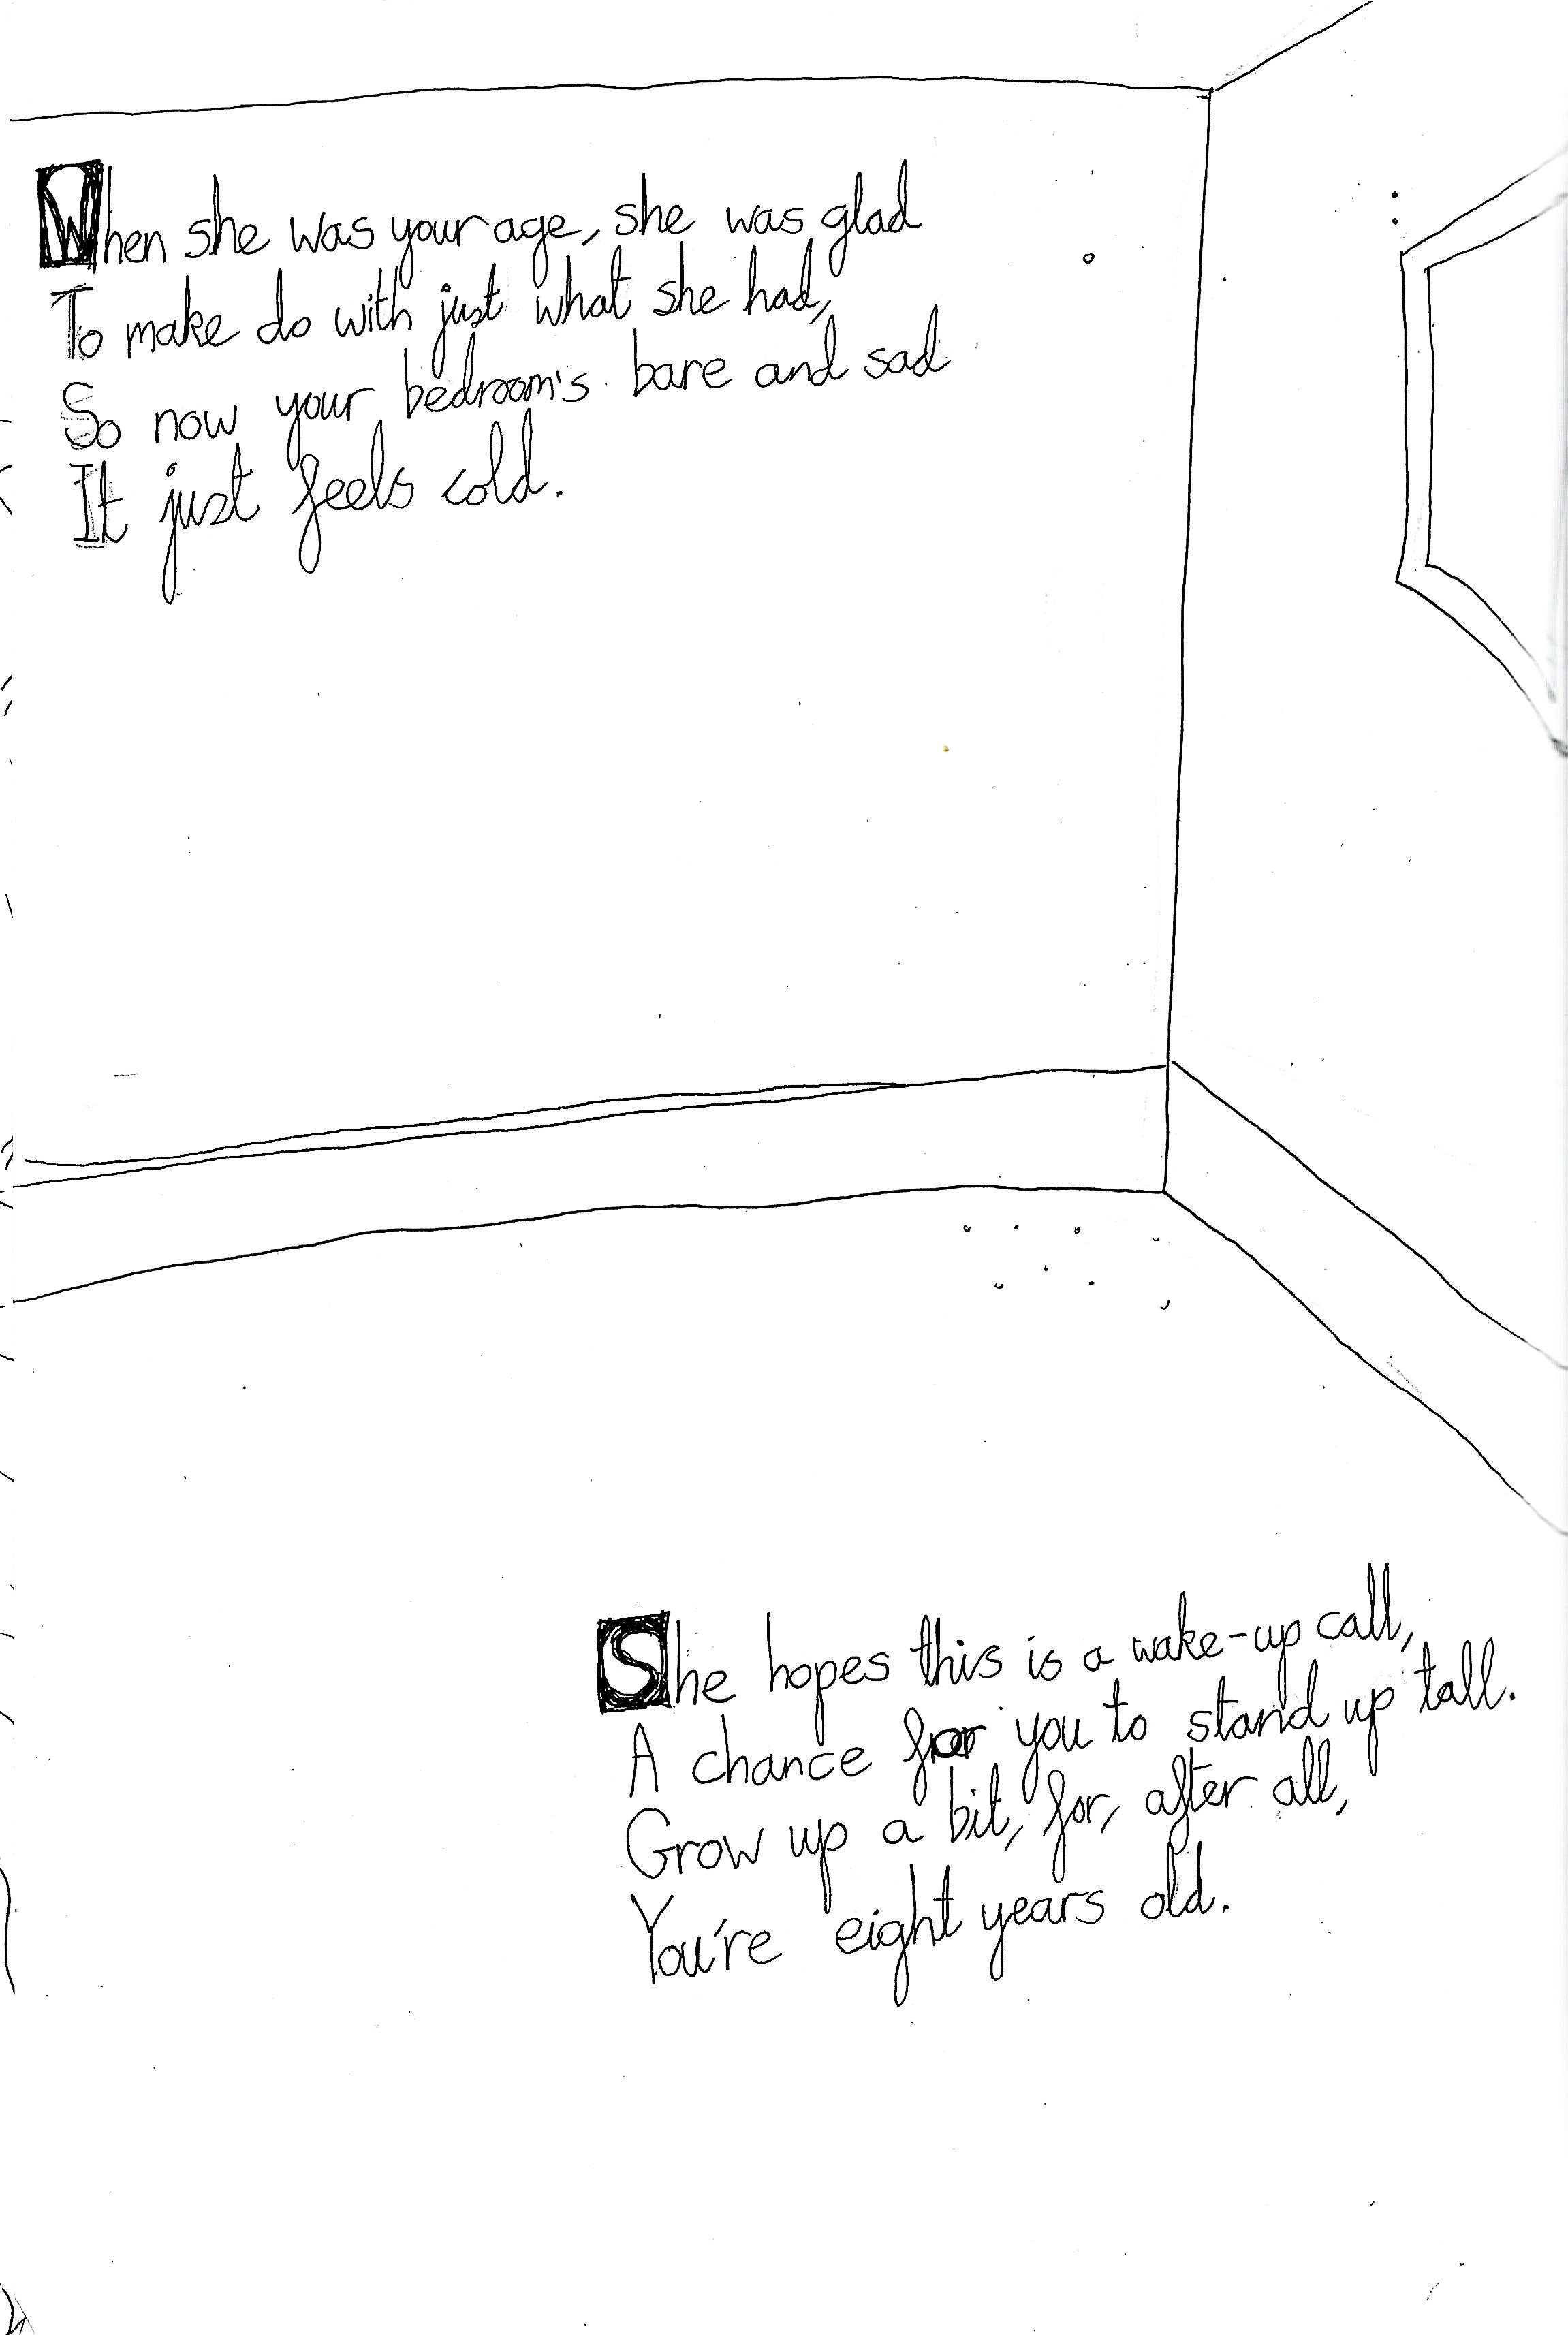 When she was your age, she was glad
To make do with just what she had,
So now your bedroom's bare and sad
It just feels cold.
She hopes this is a wake-up call,
A chance for you to stand up tall.
Grow up a bit, for, after all,
You're eight years old.